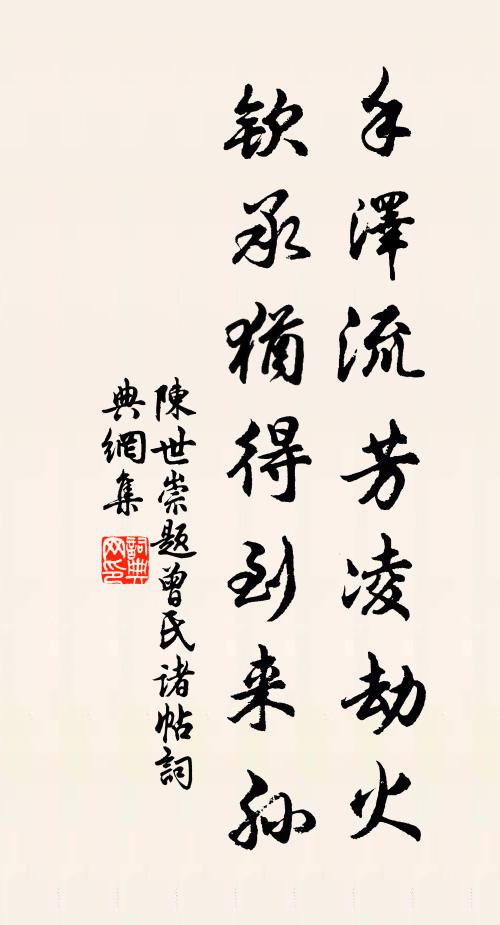 手澤流芳凌劫火
欽承猶得到来孫
陳世崇題曾氏諸帖詞
典網集
詞典
网印